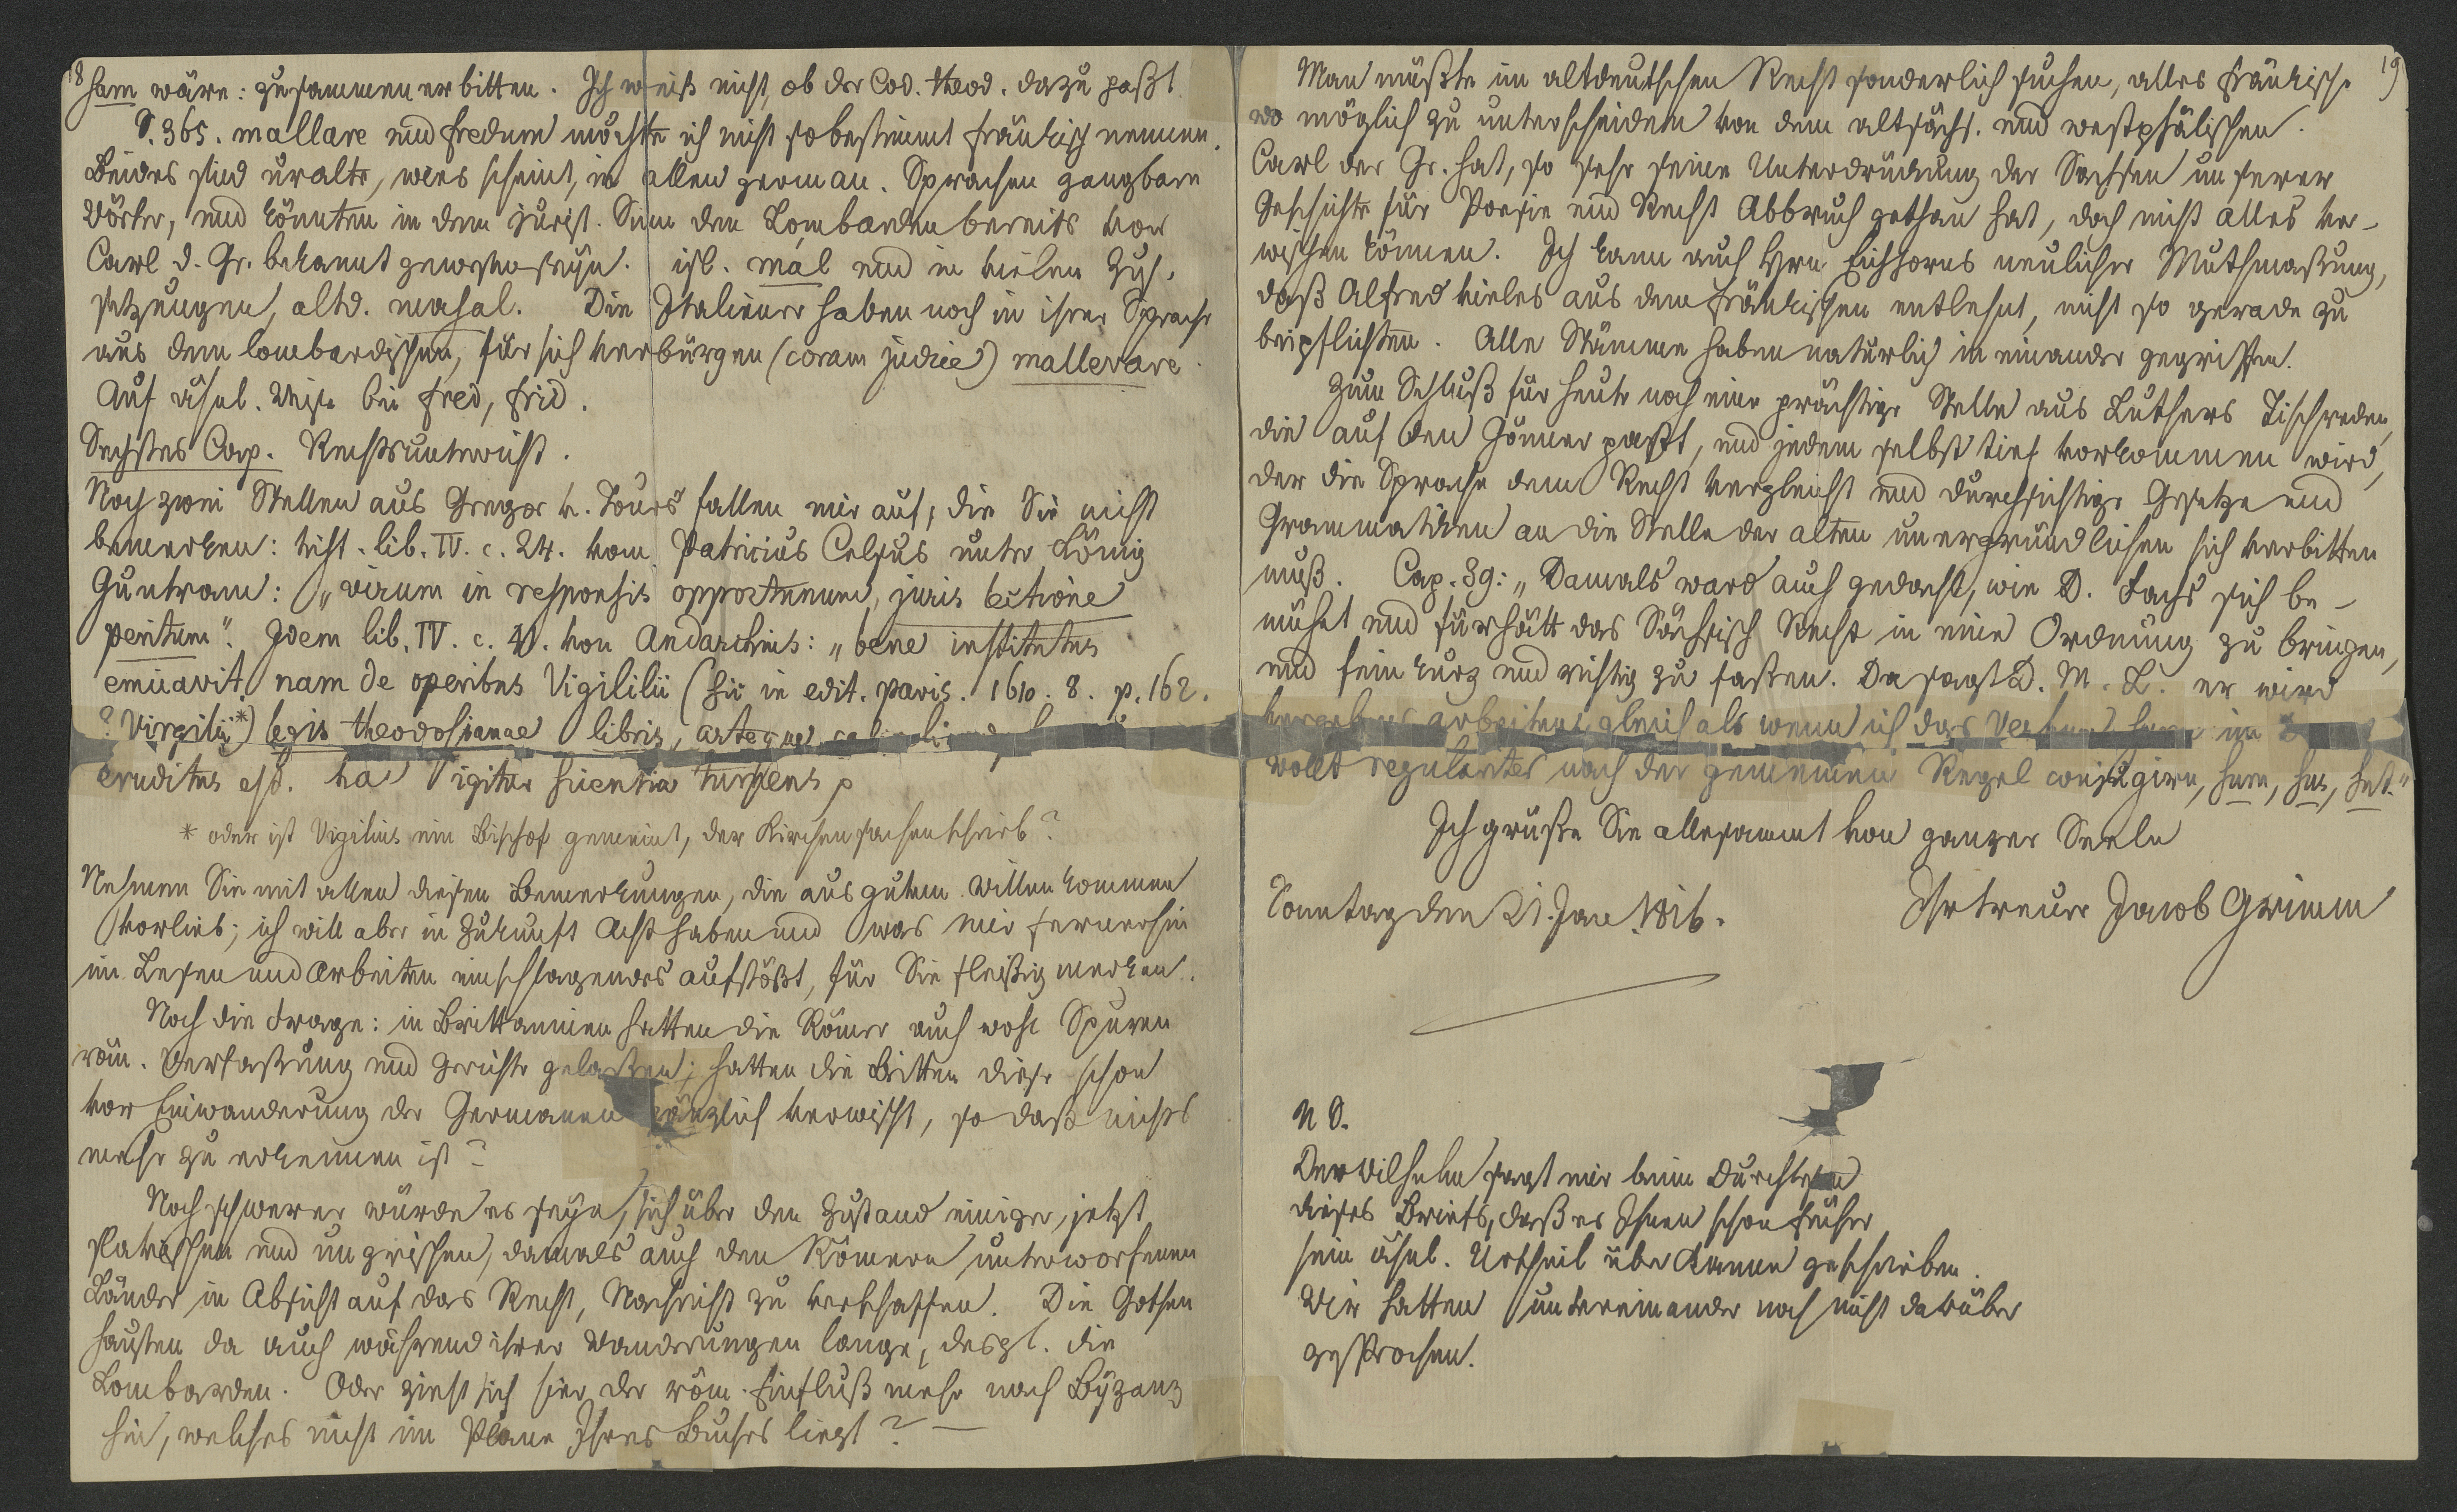 18
ham wäre: zusammen erbitten. Ich weiß nicht, ob der Cod. theod. dazu paßt
S. 365. mallare und fredum möchte ich nicht so bestimmt fränkisch nennen.
Beides sind uralte, wies scheint, in allen german. Sprachen gangbare
Wörter, und könnten in dem jurist. Sinn den Lombarden bereits vor
Carl d. Gr. bekannt gewesen seyn. isl. mál und in vielen Zus.
setzungen, altd. mahal. Die Italiener haben noch in ihrer Sprache
aus dem lombardischen, für sich verbürgen (coram judice) mallevare.
Auf ähnl. Weise bei fred, frid.
Sechstes Cap. Rechtsunterricht.
Noch zwei Stellen aus Gregor v. Tours fallen mir auf, die Sie nicht
bemerken: hist. lib. IV. c. 24. vom Patricius Celsus unter König
Guntram: „virum in responsis opportunum, juris lectione
peritum“. Idem lib. IV. c. 41. von Andarchius: „bene institutus
emicavit, nam de operibus Vigililii (sic in edit. paris. 1610. 8. p. 162.
? Virgilii*) legis theodosianae libris, arteque
eruditus est. hac igitur scientia turgens p
* oder ist Vigilius ein Bischof gemeint, der Kirchensachen schrieb?
Nehmen Sie mit allen diesen Bemerkungen, die aus gutem Willen kommen
vorlieb; ich will aber in Zukunft Acht haben und was mir fernerhin
im Lesen und Arbeiten einschlagendes aufstößt, für Sie fleißig merken.
Noch die Frage: in Brittannien hatten die Römer auch wohl Spuren
röm. Verfaßung und Gerichte gelaßen; hatten die Britten diese schon
vor Einwanderung der Germanen gänzlich verwischt, so daß nichts
mehr zu erkennen ist?
Noch schwerer würde es seyn, sich über den Zustand einiger, jetzt
slavischen und ungrischen, damals auch den Römern unterworfenen
Länder in Absicht auf das Recht, Nachricht zu verschaffen. Die Gothen
hausten da auch während ihrer Wanderungen lange, desgl. die
Lombarden. Oder zieht sich hier der röm. Einfluß mehr nach Byzanz
hin, welches nicht im Plane Ihres Buches liegt? —
19
Man müßte im altdeutschen Recht sonderlich suchen, alles fränkische
wo möglich zu unterscheiden von dem altsächs. und westphälischen.
Carl der Gr. hat, so sehr seine Unterdrückung der Sachsen unserer
Geschichte für Poesie und Recht Abbruch gethan hat, doch nicht alles ver-
wischen können. Ich kann auch Hrn Eichhorns neulicher Muthmaßung,
daß Alfred vieles aus dem fränkischen entlehnt, nicht so gerade zu
beipflichten. Alle Stämme haben natürlich in einander gegriffen.
Zum Schluß für heute noch eine prächtige Stelle aus Luthers Tischreden,
die auf den Gönner paßt, und jedem selbst tief vorkommen wird,
der die Sprache dem Recht vergleicht und durchsichtige Gesetze und
Grammatiken an die Stelle der alten unergründlichen sich verbitten
muß. Cap. 39: „Damals ward auch gedacht, wie D. Fachs sich be-
mühet und fürhätt das Sächsisch Recht in eine Ordnung zu bringen,
und fein kurz und richtig zu faßen. Da sagt D. M. L. er wird
vergebens arbeiten, gleich als wenn ich das Verbum sum in
wollt regulariter nach der gemeinen Regel conjugiren, sum, sus, sut.“
Ich grüße Sie allesammt von ganzer Seele
Sonntag den 21. Jan. 1816.
Ihr treuer Jacob Grimm
N S.
Der Wilhelm sagt mir beim Durchlesen
dieses Briefs, daß er Ihnen schon früher
sein ähnl. Urtheil über Kanne geschrieben.
Wir hatten untereinander noch nicht darüber
gesprochen.